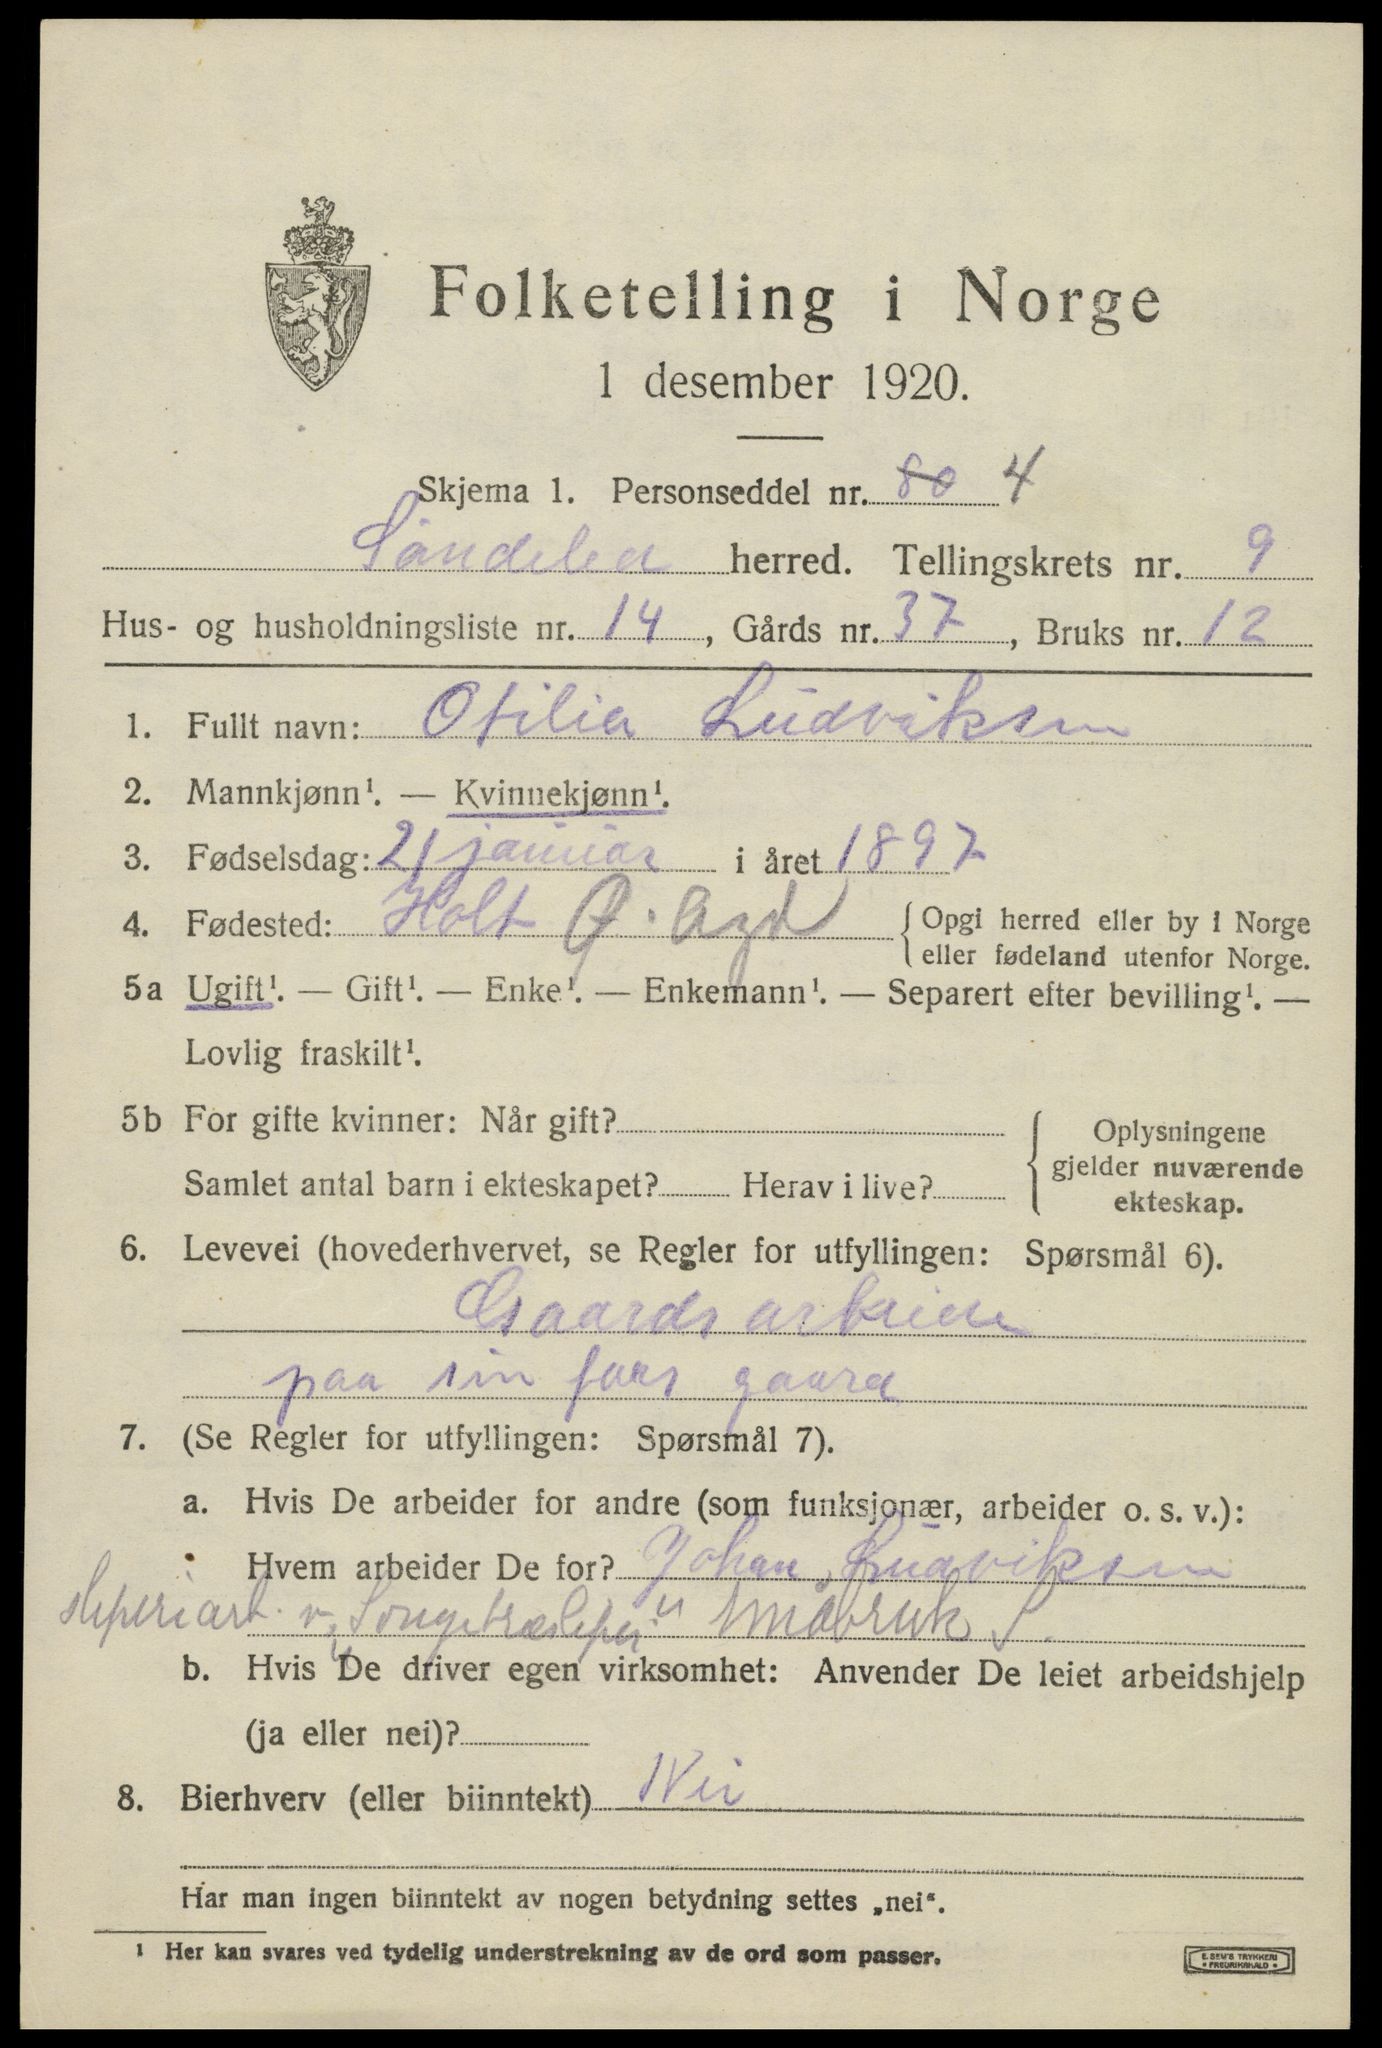 Folketelling i Norge
1 desember 1920.
Skjema 1. Personseddel nr. 80 4
Søndeled herred. Tellingskrets nr. 9
Hus- og husholdningsliste nr. 14, Gårds nr. 37, Bruks nr. 12
1. Fullt navn: Otilia Ludviksen
2. Mannkjønn¹. — Kvinnekjønn¹.
3. Fødselsdag: 21 januar i året 1897
4. Fødested: Holt Ø. Agd { Opgi herred eller by i Norge
eller fødeland utenfor Norge.
5a Ugift¹. — Gift¹. — Enke¹. — Enkemann¹. — Separert efter bevilling¹. —
Lovlig fraskilt¹.
5b For gifte kvinner: Når gift?
Samlet antal barn i ekteskapet? Herav i live?
{ Oplysningene
gjelder nuværende
ekteskap.
6. Levevei (hovederhvervet, se Regler for utfyllingen: Spørsmål 6).
Gaardsarbeide
paa sin fars gaard
7. (Se Regler for utfyllingen: Spørsmål 7).
a. Hvis De arbeider for andre (som funksjonær, arbeider o. s. v.):
Hvem arbeider De for? Johan Ludviksen
sliperiarb. v. Songe træsliperi Småbruk S.
b. Hvis De driver egen virksomhet: Anvender De leiet arbeidshjelp
(ja eller nei)?
8. Bierhverv (eller biinntekt) Nei
Har man ingen biinntekt av nogen betydning settes „nei“.
¹ Her kan svares ved tydelig understrekning av de ord som passer.
E. SEM'S TRYKKERI
• FREDRIKSHALD •